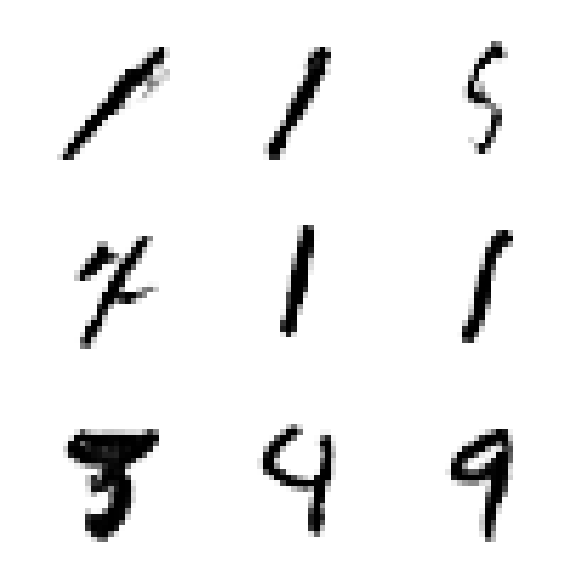 1 1 5
7 1 1
3 4 9